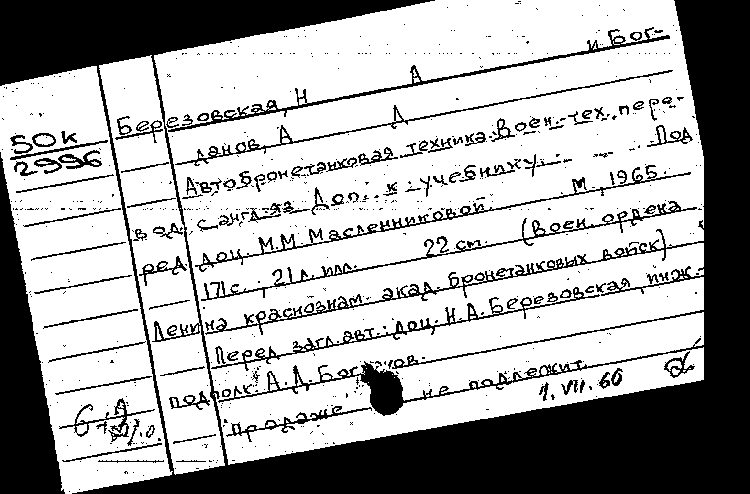 Березовская, Н А и Бог-
50к
2996
данов, А Д
Автобронетанковая техника. Воен.-тех. пере-
вод. с англ.яз Доп. к учебнику. Под
ред. доц. М.М. Масленниковой. М., 1965.
171с.; 21л. илл. 22см. (Воен. ордена
Ленина краснознам. акад. бронетанковых войск).
Перед загл. авт.: доц. Н.А. Березовская, инж.-
подполк. А.Д. Богданов.
Продаже не подлежит.
1.VII.66